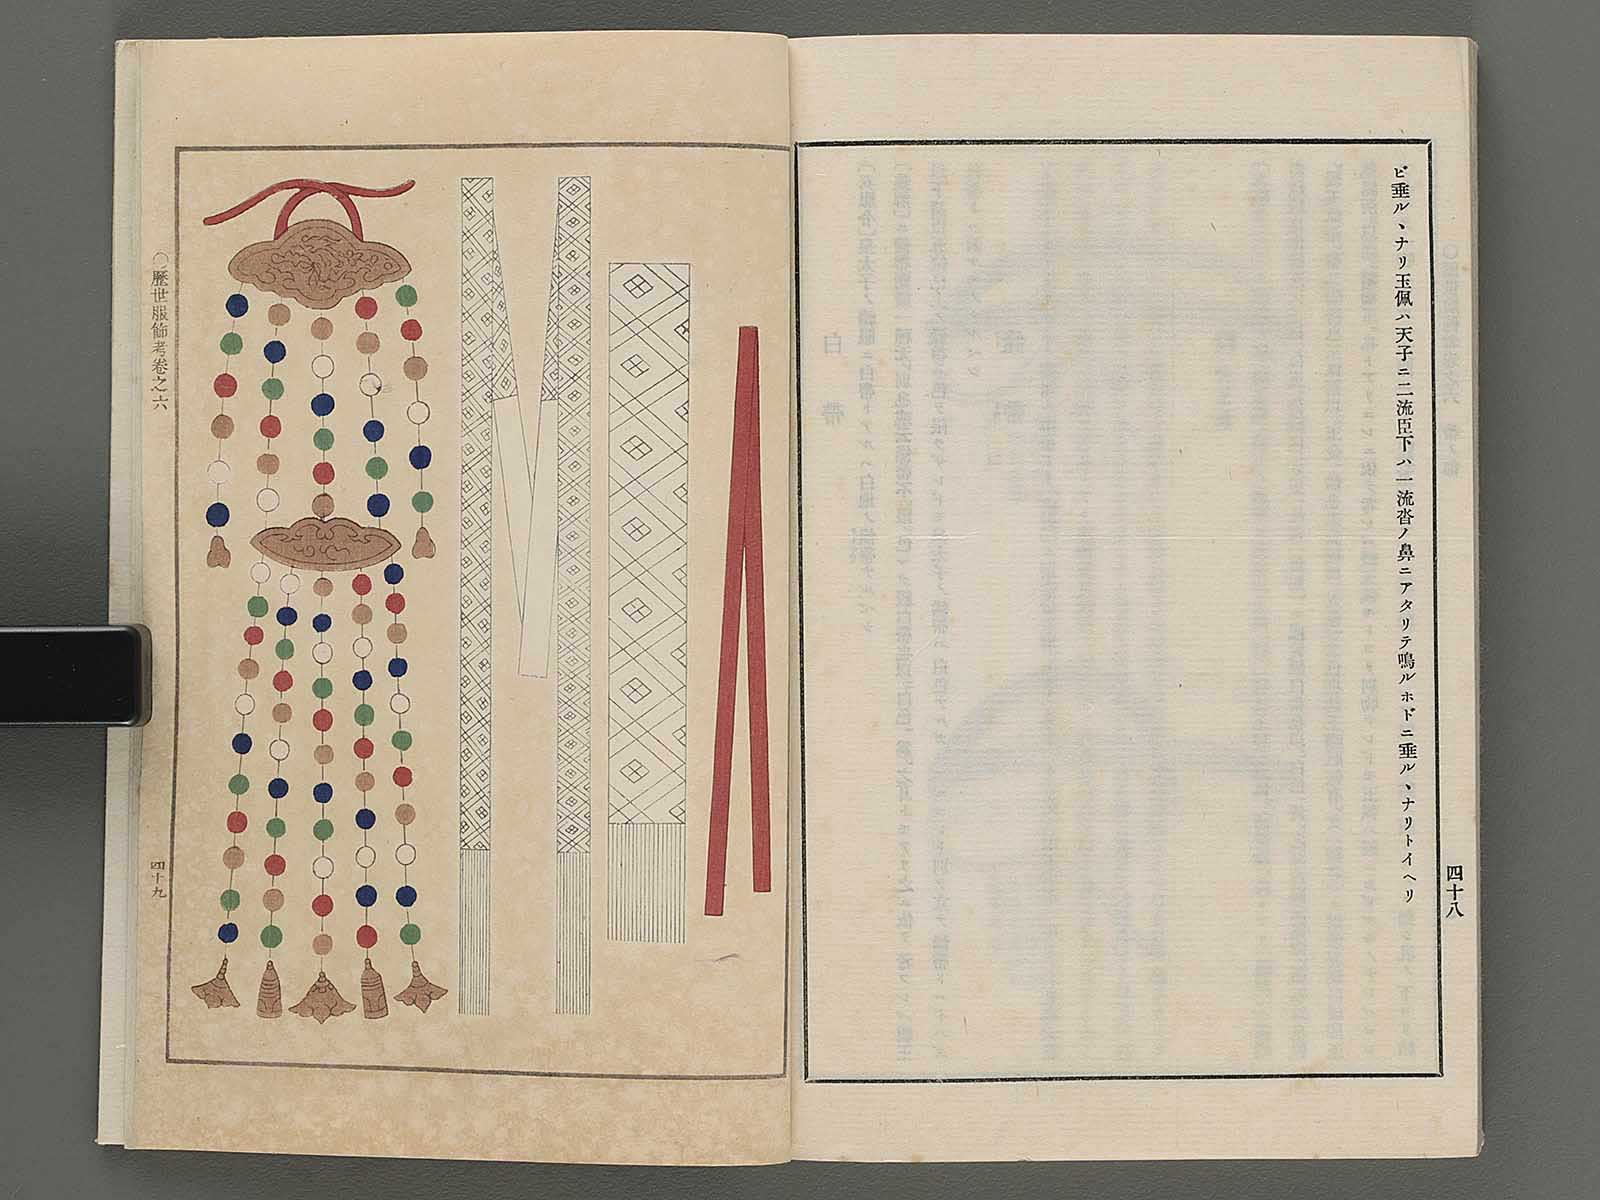 ビ垂ルヽナリ玉佩ハ天子ニ二流臣下ハ一流沓ノ鼻ニアタリテ鳴ルホドニ垂ルヽナリトイヘリ
四十八
〇歷世服飾考卷之六
四十九